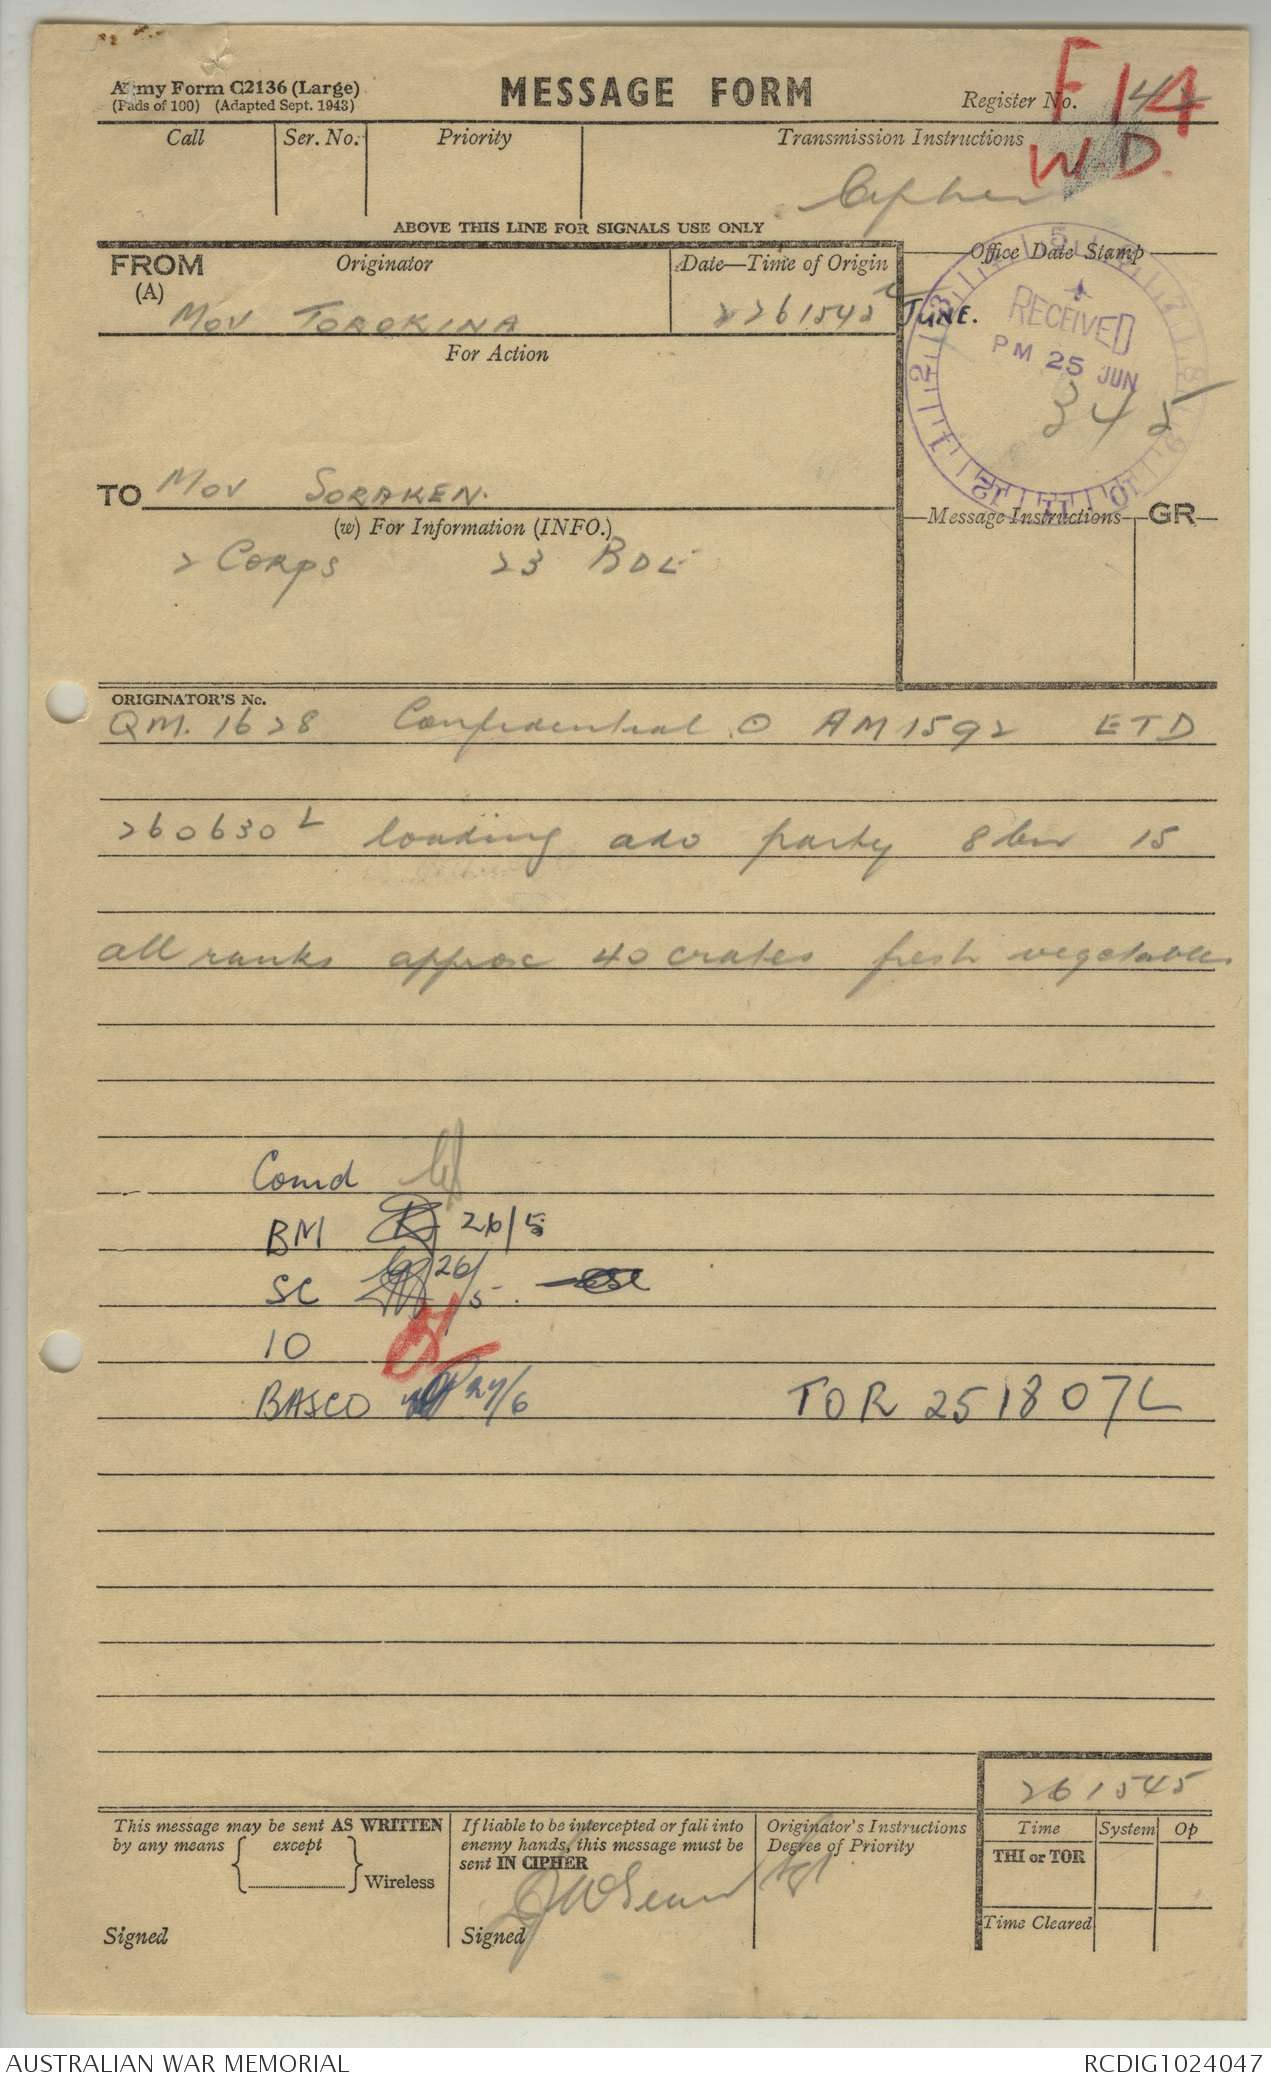 Army Form C2136 (Large)
(Pads of 100) (Adapted Sept. 1943)
MESSAGE FORM
Register No.
F14
W.D.
Call
Ser. No.
Priority
Transmission Instructions
Cipher
ABOVE THIS LINE FOR SIGNALS USE ONLY
FROM
(A)
Originator
Date—Time of Origin
Office Date Stamp
MOV TOROKINA
261545
JUNE.
RECEIVED
PM 25 JUN
345
For Action
TO MOV SORAKEN.
(w) For Information (INFO.)
Message Instructions
GR
2 CORPS 23 BDE
ORIGINATOR'S No.
QM. 1628 Confidential ⊙ AM1592 ETD
260630 L loading ado party 8 bn 15
all ranks approx 40 crates fresh vegetables
Comd
BM 26/5
SC 26/5.
IO
BASCO 27/6
TOR 251807L
261545
This message may be sent AS WRITTEN
by any means { except } Wireless
Signed
If liable to be intercepted or fall into
enemy hands, this message must be
sent IN CIPHER
Signed
Originator's Instructions
Degree of Priority
Time
System
Op
THI or TOR
Time Cleared
AUSTRALIAN WAR MEMORIAL
RCDIG1024047